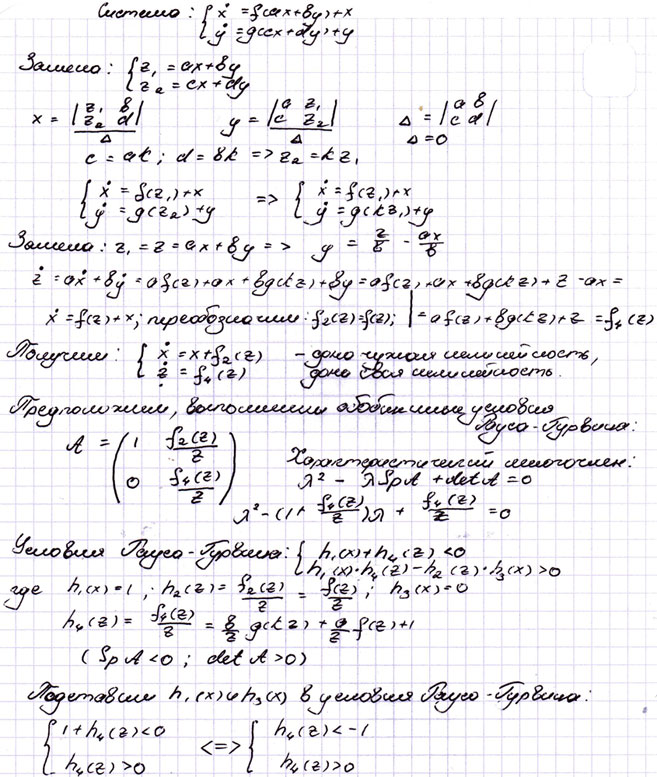 Система: { ẋ = f(ax+by)+x
ẏ = g(cx+dy)+y
Замена: { z₁ = ax+by
z₂ = cx+dy
x = |z₁ b; z₂ d| / Δ   y = |a z₁; c z₂| / Δ   Δ = |a b; c d|
Δ = 0
c = ak; d = bk => z₂ = kz₁
{ ẋ = f(z₁)+x   => { ẋ = f(z₁)+x
ẏ = g(z₂)+y   ẏ = g(kz₁)+y
Замена: z₁ = z = ax+by => y = z/b - ax/b
ż = aẋ + bẏ = af(z)+ax+bg(kz)+by = af(z)+ax+bg(kz)+z-ax =
ẋ = f(z)+x; переобозначим: f₂(z)=f(z); | = af(z)+bg(kz)+z = f₄(z)
Получим: { ẋ = x+f₂(z) - одна чужая нелинейность,
ż = f₄(z) одна своя нелинейность.
Предположим, выполнены обобщённые условия
Рауса-Гурвица:
A = (1 f₂(z)/z; 0 f₄(z)/z)
Характеристический многочлен:
λ² - λSpA + detA = 0
λ² - (1 + f₄(z)/z)λ + f₄(z)/z = 0
Условия Рауса-Гурвица: { h₁(x)+h₄(z) < 0
h₁(x)·h₄(z) - h₂(z)·h₃(x) > 0
где h₁(x) = 1; h₂(z) = f₂(z)/z = f(z)/z; h₃(x) = 0
h₄(z) = f₄(z)/z = b/z g(kz) + a/z f(z) + 1
(SpA < 0; detA > 0)
Подставим h₁(x) и h₃(x) в условия Рауса-Гурвица:
{ 1+h₄(z) < 0   <=> { h₄(z) < -1
h₄(z) > 0   h₄(z) > 0